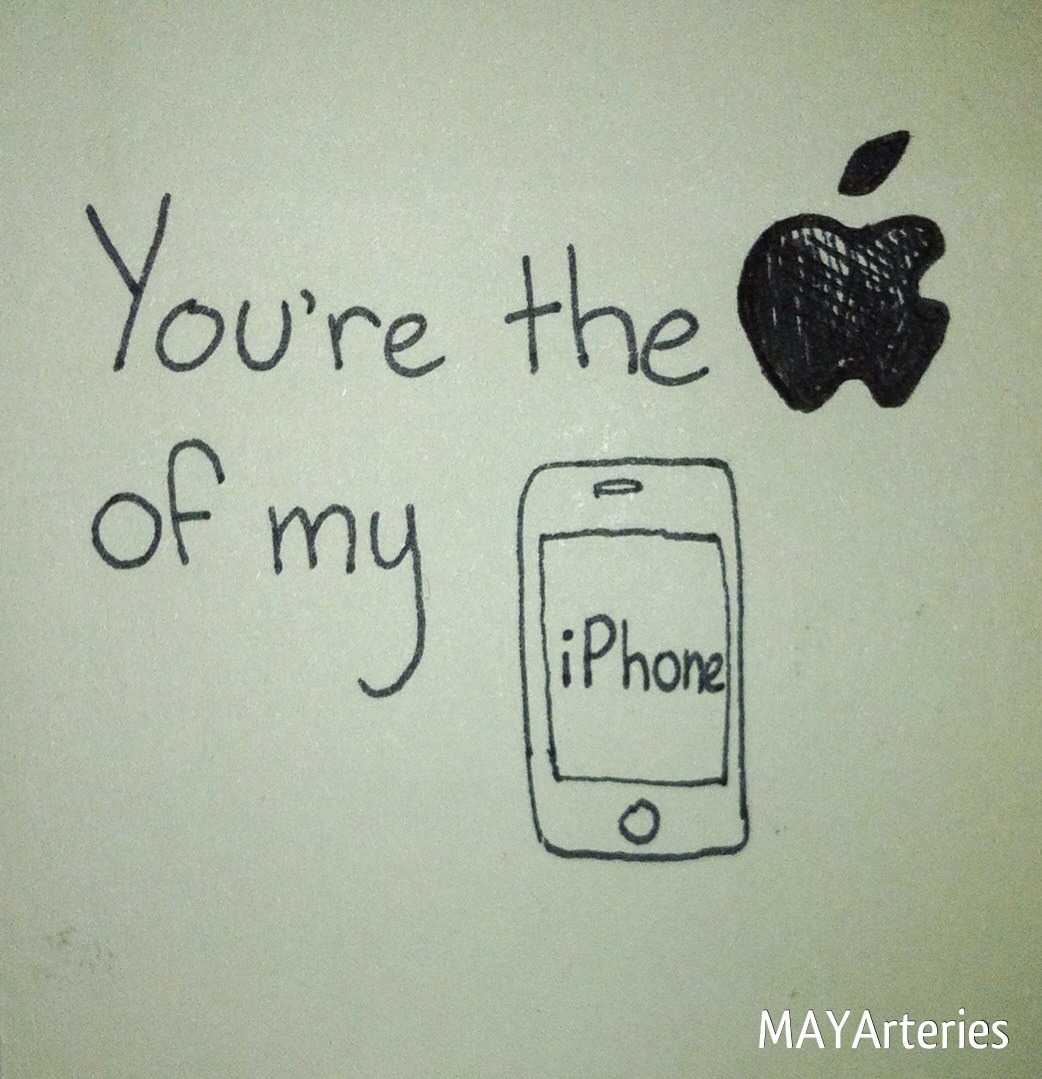 You're the
of my
iPhone
MAYArteries